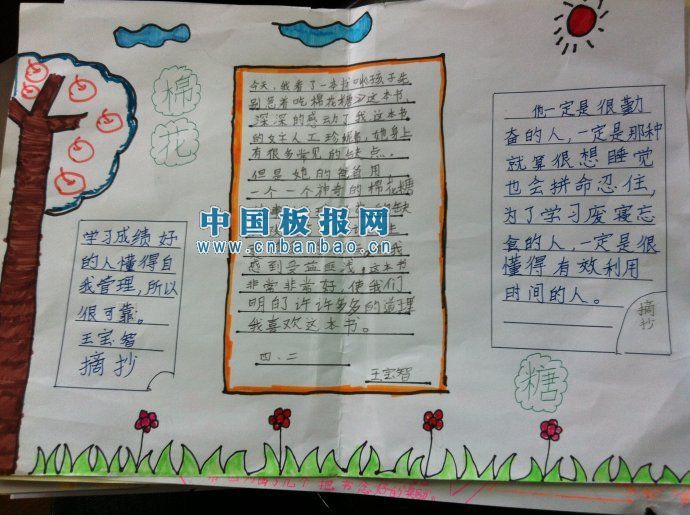 棉花
学习成绩好
的人懂得自
我管理,所以
很可靠。
王宝智
摘抄
今天,我看了一本书叫孩子先
别急着吃棉花糖,这本书,
深深的感动了我这本书
的女主人工珍妮弗,她身上
有很多常见的缺点。
但是她的爸爸用
一个一个神奇的棉花糖
感到受益匪浅,这本书
非常非常好,使我们
明白了许许多多的道理
我喜欢这本书。
四、二
王宝智
中国板报网
www.cnbanbao.cn
他一定是很勤
奋的人,一定是那种
就算很想睡觉
也会拼命忍住,
为了学习废寝忘
食的人,一定是很
懂得有效利用
时间的人。
摘抄
糖